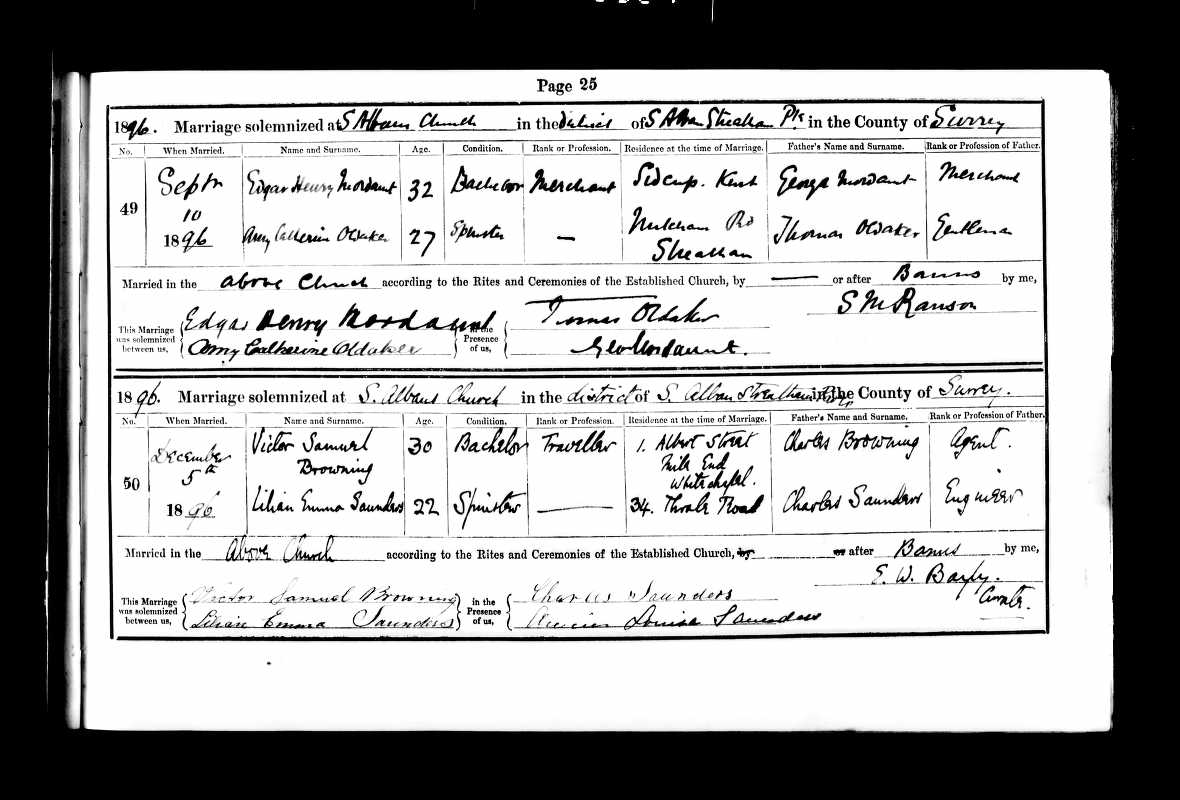 Page 25
1896. Marriage solemnized at S Albans Church in the District of S Alban Streatham Pk in the County of Surrey
No. When Married. Name and Surname. Age. Condition. Rank or Profession. Residence at the time of Marriage. Father's Name and Surname. Rank or Profession of Father.
49 Septr 10 1896
Edgar Henry Mordaunt 32 Bachelor Merchant Sidcup. Kent George Mordaunt Merchant
Amy Catherine Oldaker 27 Spinster — Mitcham Rd Streatham Thomas Oldaker Gentleman
Married in the above Church according to the Rites and Ceremonies of the Established Church, by — or after Banns by me,
S M Ranson
This Marriage was solemnized between us, Edgar Henry Mordaunt in the Presence of us, Thomas Oldaker
Amy Catherine Oldaker Geo Mordaunt.
1896. Marriage solemnized at S. Albans Church in the district of S. Alban Streatham in the County of Surrey.
No. When Married. Name and Surname. Age. Condition. Rank or Profession. Residence at the time of Marriage. Father's Name and Surname. Rank or Profession of Father.
50 December 5th 1896
Victor Samuel Browning 30 Bachelor Traveller 1. Albert Street Mile End Whitechapel. Charles Browning Agent.
Lilian Emma Saunders 22 Spinster — 34. Thrale Road Charles Saunders Engineer
Married in the Above Church according to the Rites and Ceremonies of the Established Church, by or after Banns by me,
E. W.
Curate.
This Marriage was solemnized between us, Victor Samuel Browning in the Presence of us, Charles Saunders
Lilian Emma Saunders Louisa Saunders